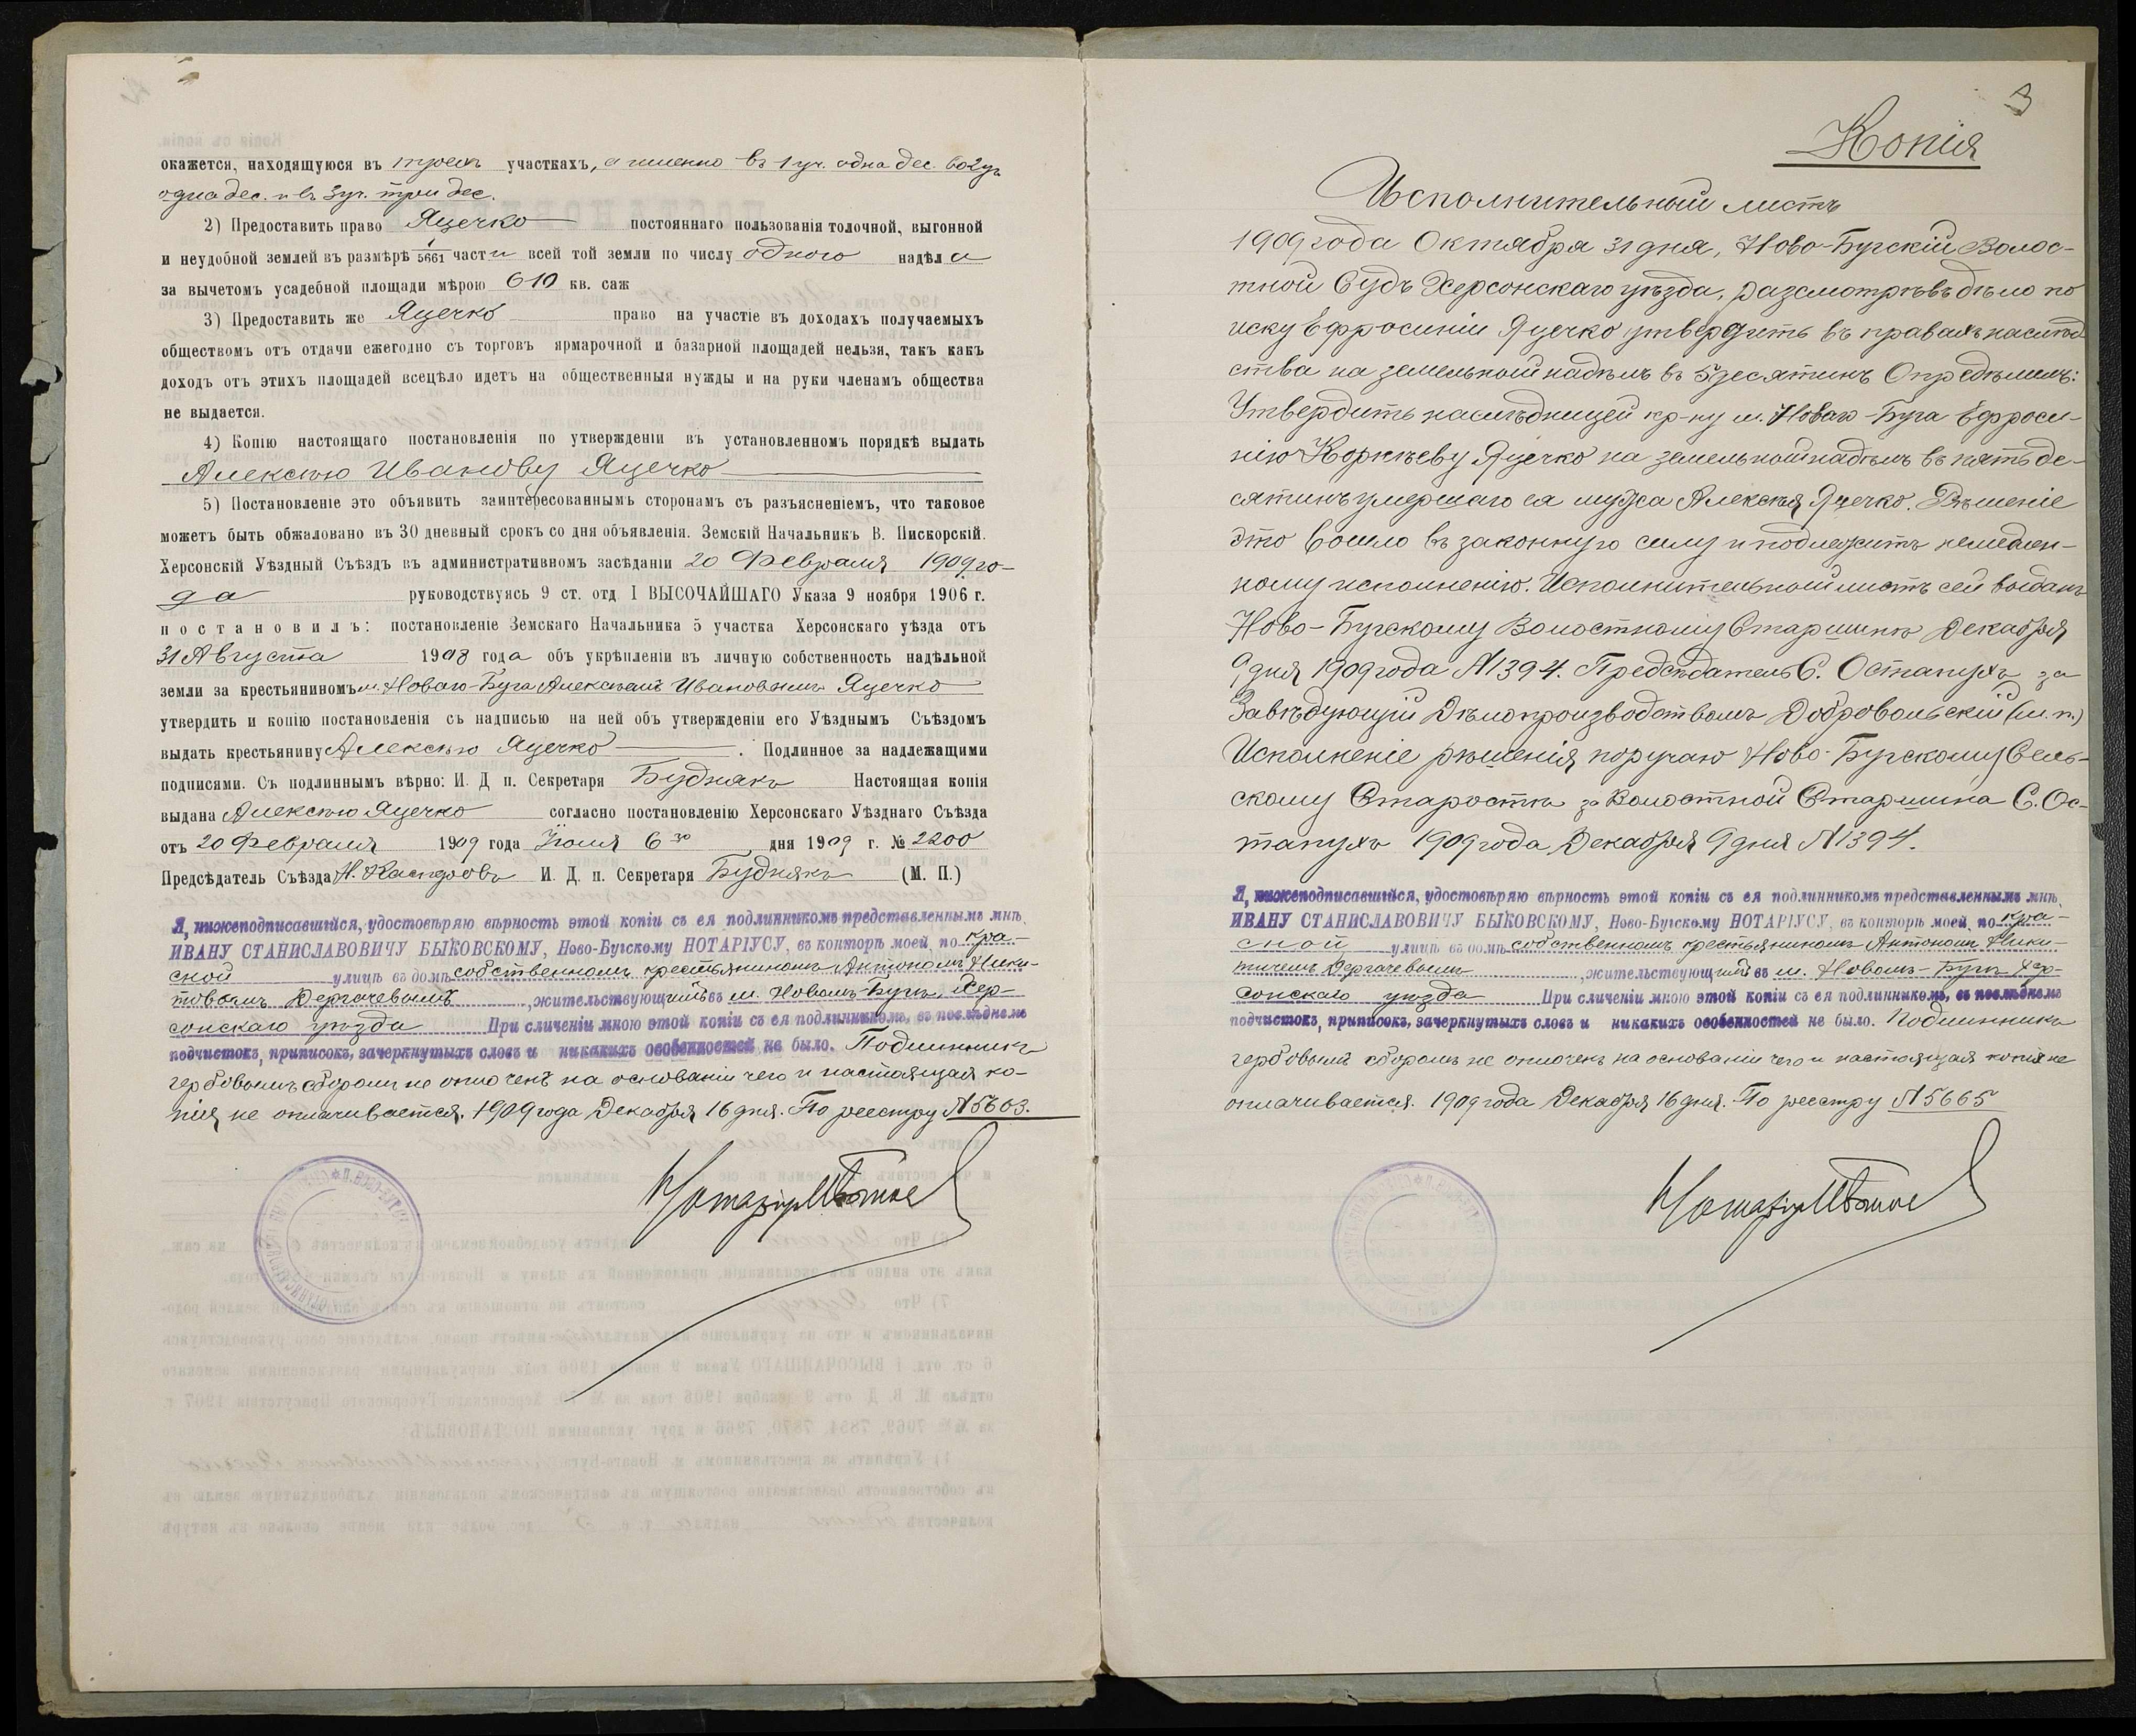 окажется, находящуюся въ трехъ участкахъ, а именно въ 1 уч. одна дес. во 2 уч.
одна дес. и въ 3 уч. три дес.
2) Предоставить право Яцечко постояннаго пользованія толочной, выгонной
и неудобной землей въ размѣрѣ 1/5661 части всей той земли по числу одного надѣла
за вычетомъ усадебной площади мѣрою 610 кв. саж
3) Предоставить же Яцечко право на участіе въ доходахъ получаемыхъ
обществомъ отъ отдачи ежегодно съ торговъ ярмарочной и базарной площадей нельзя, такъ какъ
доходъ отъ этихъ площадей всецѣло идетъ на общественныя нужды и на руки членамъ общества
не выдается.
4) Копію настоящаго постановленія по утвержденіи въ установленномъ порядкѣ выдать
Алексѣю Иванову Яцечко
5) Постановленіе это объявить заинтересованнымъ сторонамъ съ разъясненіемъ, что таковое
можетъ быть обжаловано въ 30 дневный срокъ со дня объявленія. Земскій Начальникъ В. Пискорскій.
Херсонскій Уѣздный Съѣздъ въ административномъ засѣданіи 20 Февраля 1909 го-
да руководствуясь 9 ст. отд I ВЫСОЧАЙШАГО Указа 9 ноября 1906 г.
постановилъ: постановленіе Земскаго Начальника 5 участка Херсонскаго уѣзда отъ
31 Августа 1908 года объ укрѣпленіи въ личную собственность надѣльной
земли за крестьяниномъ м. Новаго-Буга Алексѣемъ Ивановымъ Яцечко
утвердить и копію постановленія съ надписью на ней объ утвержденіи его Уѣзднымъ Съѣздомъ
выдать крестьянину Алексѣю Яцечко. Подлинное за надлежащими
подписями. Съ подлиннымъ вѣрно: И. Д п. Секретаря Буднякъ Настоящая копія
выдана Алексѣю Яцечко согласно постановленію Херсонскаго Уѣзднаго Съѣзда
отъ 20 Февраля 1909 года Іюля 6 го дня 1909 г. № 2200
Предсѣдатель Съѣзда Н. И. Д. п. Секретаря Буднякъ (М. П.)
Я, нижеподписавшійся, удостовѣряю вѣрность этой копіи съ ея подлинникомъ представленнымъ мнѣ,
ИВАНУ СТАНИСЛАВОВИЧУ БЫКОВСКОМУ, Ново-Бугскому НОТАРІУСУ, въ конторѣ моей, по Кра-
сной улицѣ въ домѣ собственномъ крестьяниномъ Антономъ Ники-
товымъ Дергачевымъ, жительствующимъ въ м. Новомъ-Бугѣ, Хер-
сонскаго уѣзда При сличеніи мною этой копіи съ ея подлинникомъ, въ послѣднемъ
подчистокъ, приписокъ, зачеркнутыхъ словъ и никакихъ особенностей не было. Подлинникъ
гербовымъ сборомъ не оплоченъ на основаніи чего и настоящая ко-
пія не оплачивается. 1909 года Декабря 16 дня. По реестру №
Нотаріусъ
3
Копія
Исполнительный листъ
1909 года Октября 31 дня, Ново-Бугскій Волос-
тной Судъ Херсонскаго уѣзда, разсмотрѣвъ дѣло по
иску Ефросиніи Яцечко утвердить въ правахъ наслѣд
ства на земельный надѣлъ въ 5 десятинъ Опредѣлилъ:
Утвердить наслѣдницей кр-ку м. Новаго-Буга Ефроси-
нію Корнѣеву Яцечко на земельный надѣлъ въ пять де-
сятинъ умершаго ея мужа Алексѣя Яцечко. Рѣшеніе
это вошло въ законную силу и подлежитъ немедлен-
ному исполненію. Исполнительный листъ сей выданъ
Ново-Бугскому Волостному Старшинѣ Декабря
9 дня 1909 года №1394. Предсѣдатель С. Остапухъ за
Завѣдующій Дѣлопроизводствомъ Добровольскій (м. п.)
Исполненіе рѣшенія поручаю Ново-Бугскому Сель-
скому Старостѣ за Волостной Старшина С. Ос-
тапухъ 1909 года Декабря 9 дня №1394.
Я, нижеподписавшійся, удостовѣряю вѣрность этой копіи съ ея подлинникомъ представленнымъ мнѣ,
ИВАНУ СТАНИСЛАВОВИЧУ БЫКОВСКОМУ, Ново-Бугскому НОТАРІУСУ, въ конторѣ моей, по Кра-
сной улицѣ въ домѣ собственномъ крестьяниномъ Антономъ Ники-
тичемъ Дергачевымъ, жительствующимъ въ м. Новомъ-Бугѣ Хер-
сонскаго уѣзда При сличеніи мною этой копіи съ ея подлинникомъ, въ послѣднемъ
подчистокъ, приписокъ, зачеркнутыхъ словъ и никакихъ особенностей не было. Подлинникъ
гербовымъ сборомъ не оплоченъ на основаніи чего и настоящая копія не
оплачивается. 1909 года Декабря 16 дня. По реестру №5665
Нотаріусъ